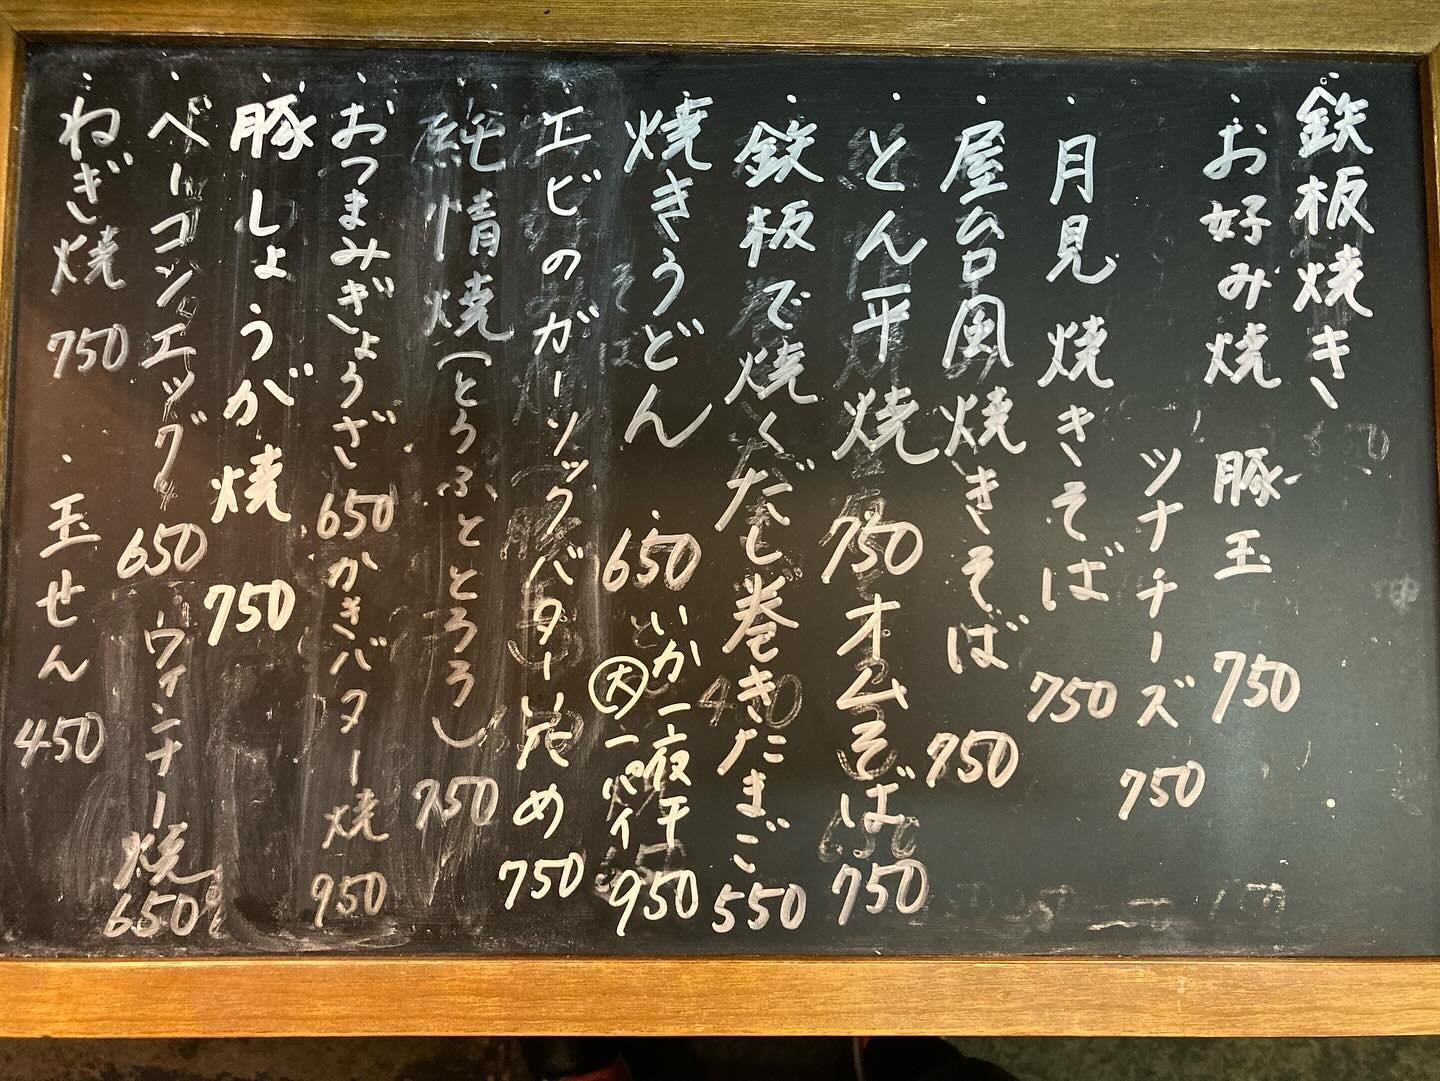 鉄板焼き
・お好み焼 豚玉 750
ツナチーズ 750
・月見焼きそば 750
・屋台風焼きそば 750
・とん平焼 750
オムそば 750
・鉄板で焼くだし巻きたまご 550
・焼きうどん 650
・いか一夜干 大一パイ 950
・エビのガーリックバターいため 750
・純情焼(とうふととろろ) 750
・おつまみぎょうざ 650
かきバター焼 950
・豚しょうが焼 750
・ベーコンエッグ 650
ウィンナー焼 650
・ねぎ焼 750
・玉せん 450